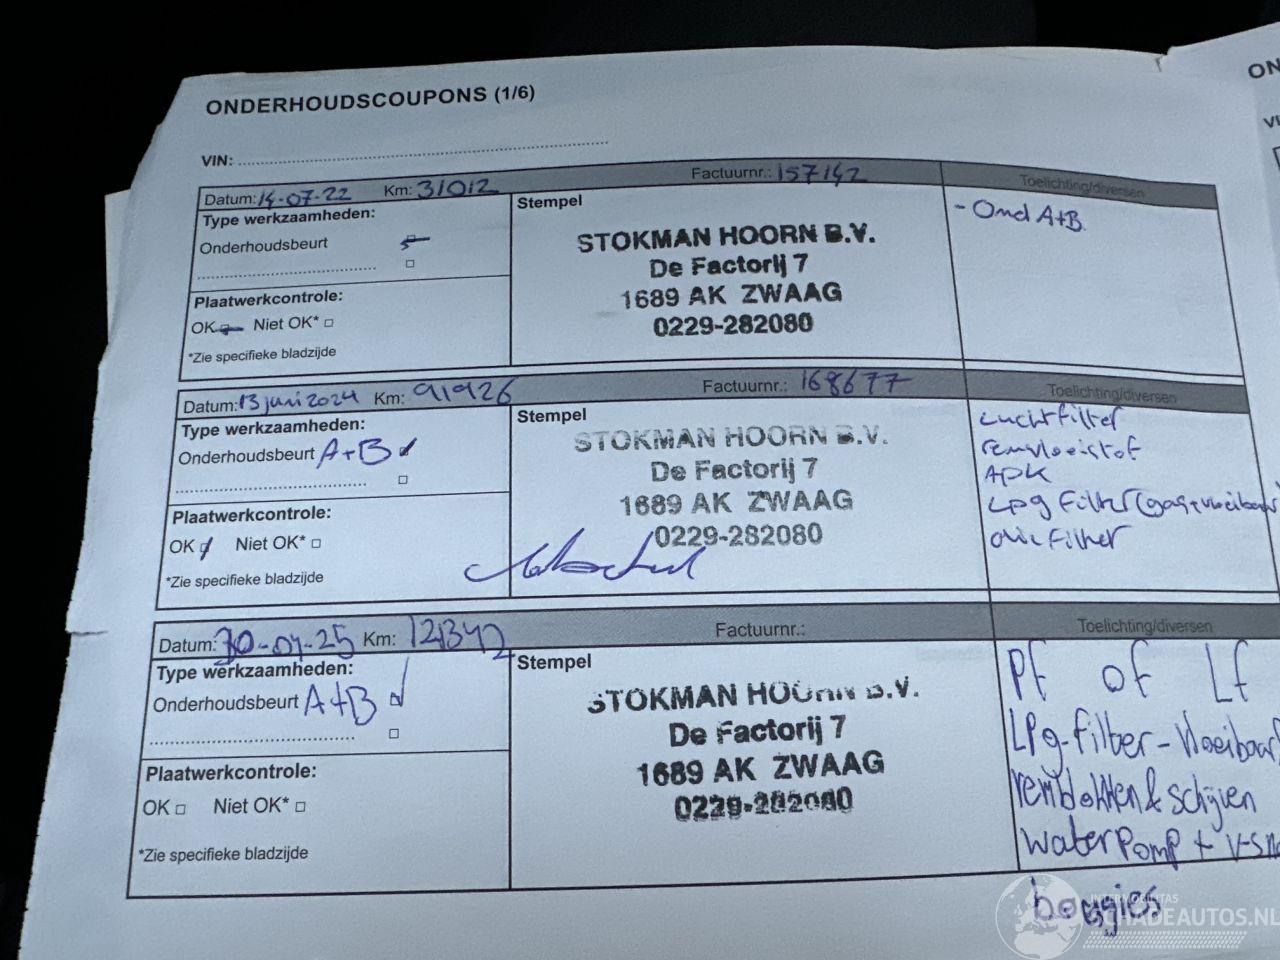 ONDERHOUDSCOUPONS (1/6)
ON
VIN:
Datum: 14-07-22 Km: 31012 Factuurnr.: 157142 Toelichting/diversen
Type werkzaamheden: Stempel
Onderhoudsbeurt
- Ond A+B
STOKMAN HOORN B.V.
De Factorij 7
1689 AK ZWAAG
0229-282080
Plaatwerkcontrole:
OK Niet OK*
*Zie specifieke bladzijde
Datum: 13 juni 2024 Km: 91926 Factuurnr.: 168677 Toelichting/diversen
Type werkzaamheden: Stempel
Onderhoudsbeurt A+B
STOKMAN HOORN B.V.
De Factorij 7
1689 AK ZWAAG
0229-282080
Luchtfilter
remvloeistof
APK
LPG Filter (gas+vloeibaar)
oliefilter
Plaatwerkcontrole:
OK Niet OK*
*Zie specifieke bladzijde
Datum: 30-04-25 Km: 121342 Factuurnr.: Toelichting/diversen
Type werkzaamheden: Stempel
Onderhoudsbeurt A+B
STOKMAN HOORN B.V.
De Factorij 7
1689 AK ZWAAG
0229-282080
Pf of Lf
LPG-filter-vloeibaar
remblokken & schijven
waterpomp +
bougies
Plaatwerkcontrole:
OK Niet OK*
*Zie specifieke bladzijde
INTERMOBILITAS
SCHADEAUTOS.NL